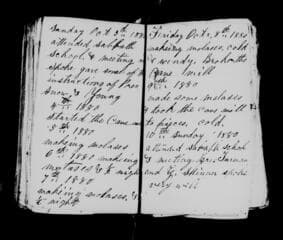 Sunday Oct 3th 1880
attended sabbath
school & meeting
spoke gave some of the
instructions of Pres
Snow & Young
4th 1880
started the Cane mill
5th 1880
making molases
6th 1880 making
molases & ½ night
7th 1880
making molases &
½ night
Friday Oct. 8th 1880
making molases, cold
& windy. Broke the
Cane mill
9th 1880
made some molases
took the cane mill
to pieces, cold.
10th Sunday 1880
attended Sabath school
& meeting. Bro.
and J. Skinner spoke
very well